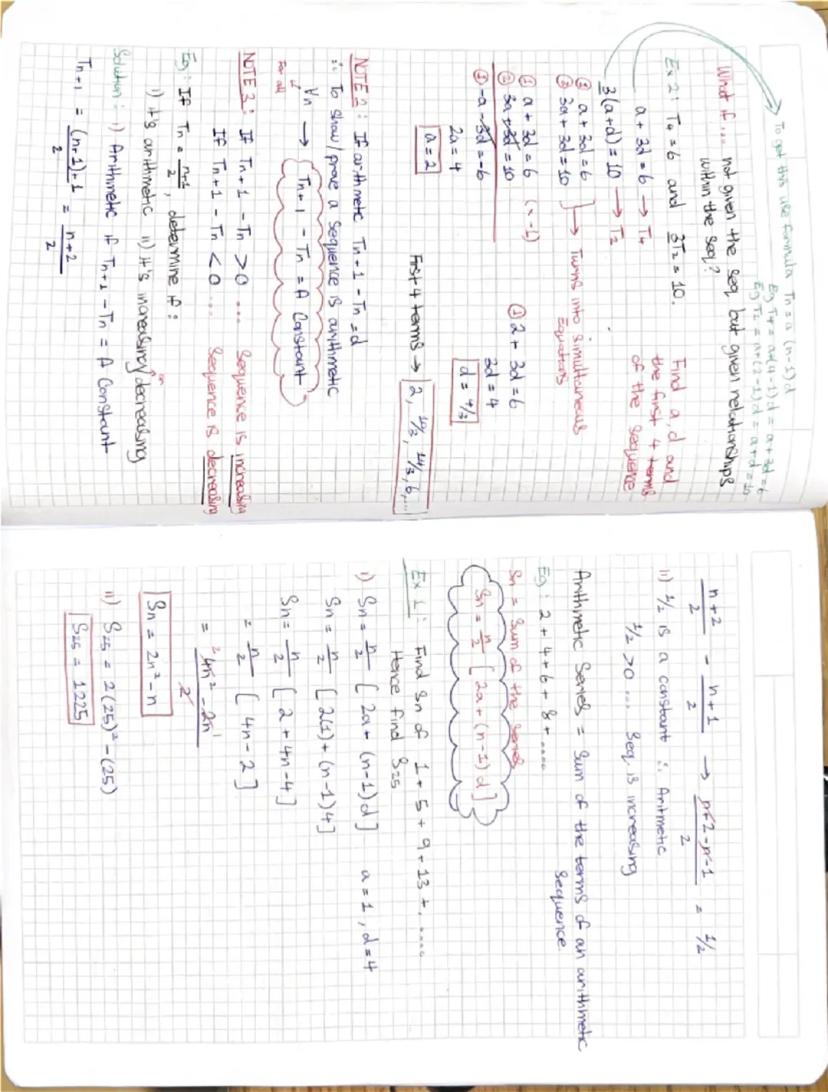 To get this use formula Tn = a (n-1)d
Eg T4 = a+(4-1)d = a+3d = 6
Eg T2 = a+(2-1)d = a+d = 10
What if... not given the seq, but given relationships
within the seq?
Ex 2: T4 = 6 and 3T2 = 10.
Find a, d and
the first 4 terms
of the sequence
a + 3d = 6 → T4
3(a+d) = 10 → T2
① a + 3d = 6
② 3a + 3d = 10
→ Turns into simultaneous
Equations
① a + 3d = 6 (x -1)
② 3a + 3d = 10
① -a - 3d = -6
2a = 4
a = 2
① 2 + 3d = 6
3d = 4
d = 4/3
First 4 terms → 2, 10/3, 14/3, 6,...
NOTE 2: If arithmetic Tn+1 - Tn = d
∴ To show/prove a sequence is arithmetic
∀n → Tn+1 - Tn = A Constant
For all
NOTE 3: If Tn+1 - Tn > 0 ... Sequence is increasing
If Tn+1 - Tn < 0 ... Sequence is decreasing
Eg: If Tn = n+1/2, determine if:
i) it's arithmetic ii) it's increasing/decreasing
Solution: i) Arithmetic if Tn+1 - Tn = A Constant
Tn+1 = (n+1)+1/2 = n+2/2
n+2/2 - n+1/2 → n+2-n-1/2 = 1/2
ii) 1/2 is a constant ∴ Aritmetic
1/2 > 0 ... seq. is increasing
Arithmetic Series = Sum of the terms of an arithmetic
Sequence.
Eg: 2 + 4 + 6 + 8 + ....
Sn = Sum of the series
Sn = n/2 [2a + (n-1)d]
Ex 1: Find Sn of 1 + 5 + 9 + 13 +, ....
Hence find S25
i) Sn = n/2 [2a + (n-1)d] a = 1, d = 4
Sn = n/2 [2(1) + (n-1)4]
Sn = n/2 [2 + 4n - 4]
= n/2 [4n - 2]
= 4n² - 2n/2
Sn = 2n² - n
ii) S25 = 2(25)² - (25)
S25 = 1225